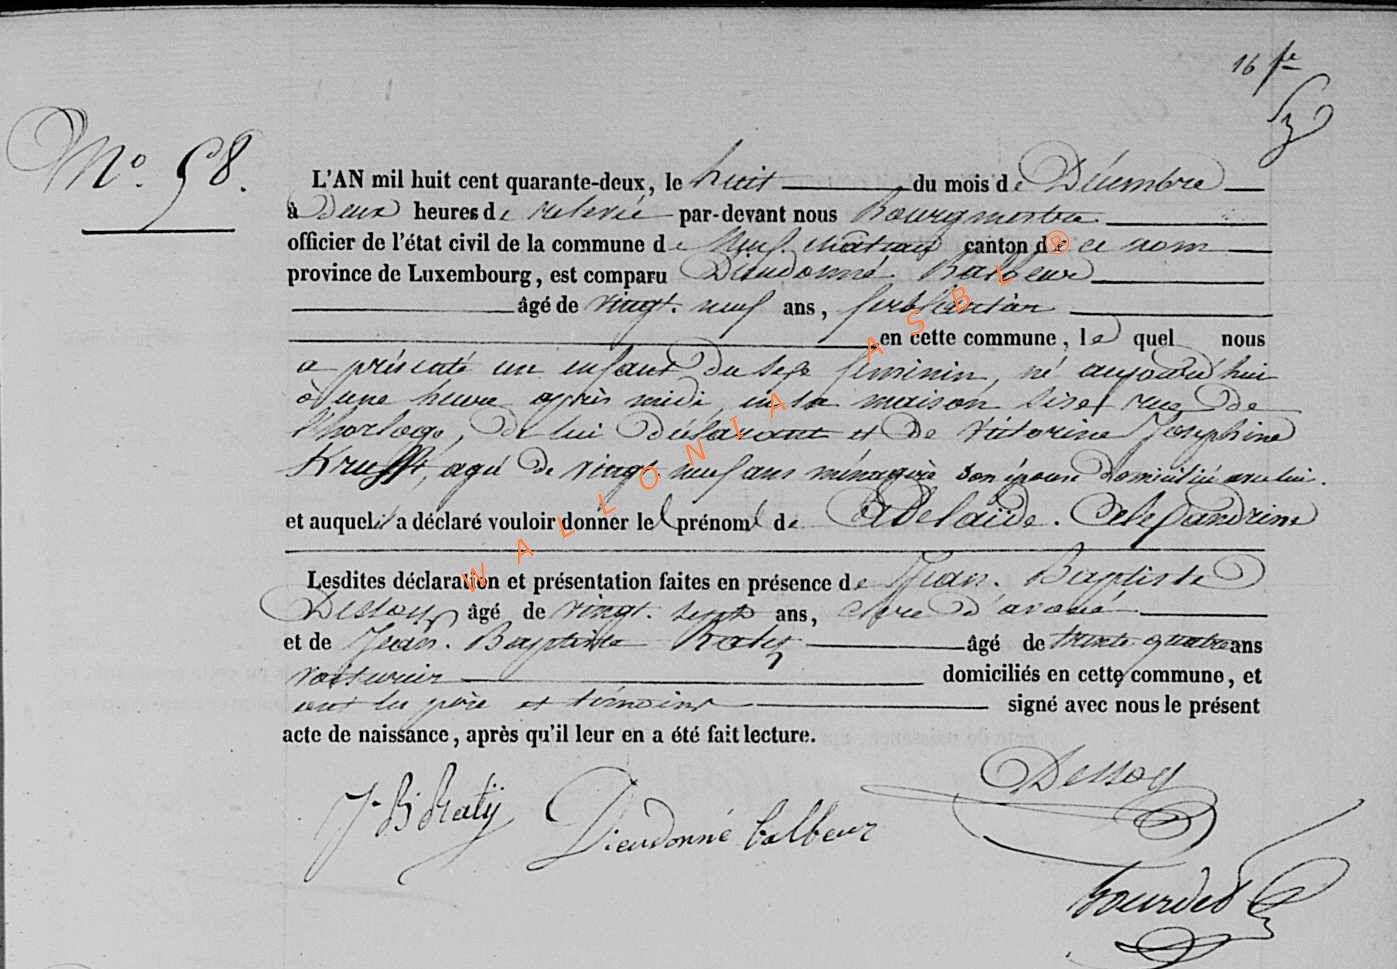 16 fe
N° 58.
L'AN mil huit cent quarante-deux, le huit du mois de Décembre
à Deux heures de relevée par-devant nous Bourgmestre
officier de l'état civil de la commune de Neufchâteau canton de ce nom
province de Luxembourg, est comparu Dieudonné Balbeur
âgé de vingt-neuf ans, ferblantier
en cette commune, lequel nous
a présenté un enfant du sexe féminin, né aujourd'hui
à une heure après midi en la maison sise rue de
l'horloge, de lui déclarant et de Victorine Josephine
Krufft, agée de vingt neuf ans ménagère son épouse domiciliée avec lui.
et auquel il a déclaré vouloir donner le prénom de Adelaïde. Alexandrine
Lesdites déclaration et présentation faites en présence de Jean-Baptiste
Dessoy âgé de vingt-sept ans, clerc d'avoué
et de Jean-Baptiste Katy âgé de trente quatre ans
voiturier domiciliés en cette commune, et
ont les père et témoins signé avec nous le présent
acte de naissance, après qu'il leur en a été fait lecture.
Dessoy
J. B. Katy Dieudonné balbeur
WALLONIA ASBL ®